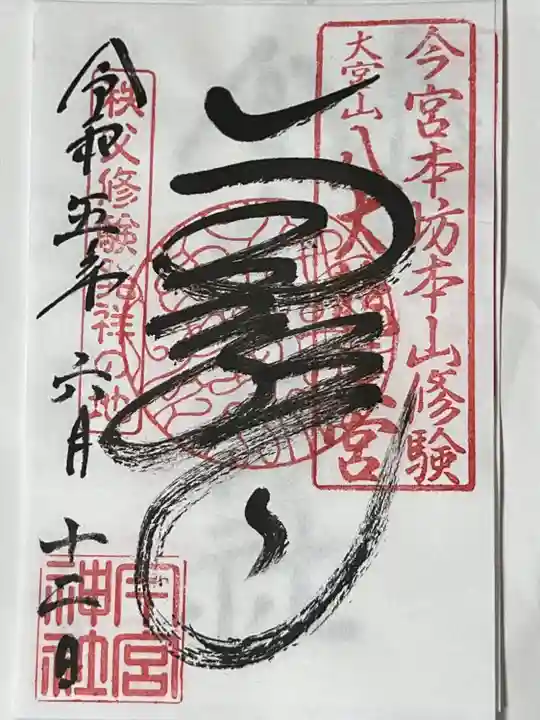 今宮本坊本山修験
大宮山
八大龍王宮
秩父修験発祥の地
令和五年六月十二日
今宮
神社